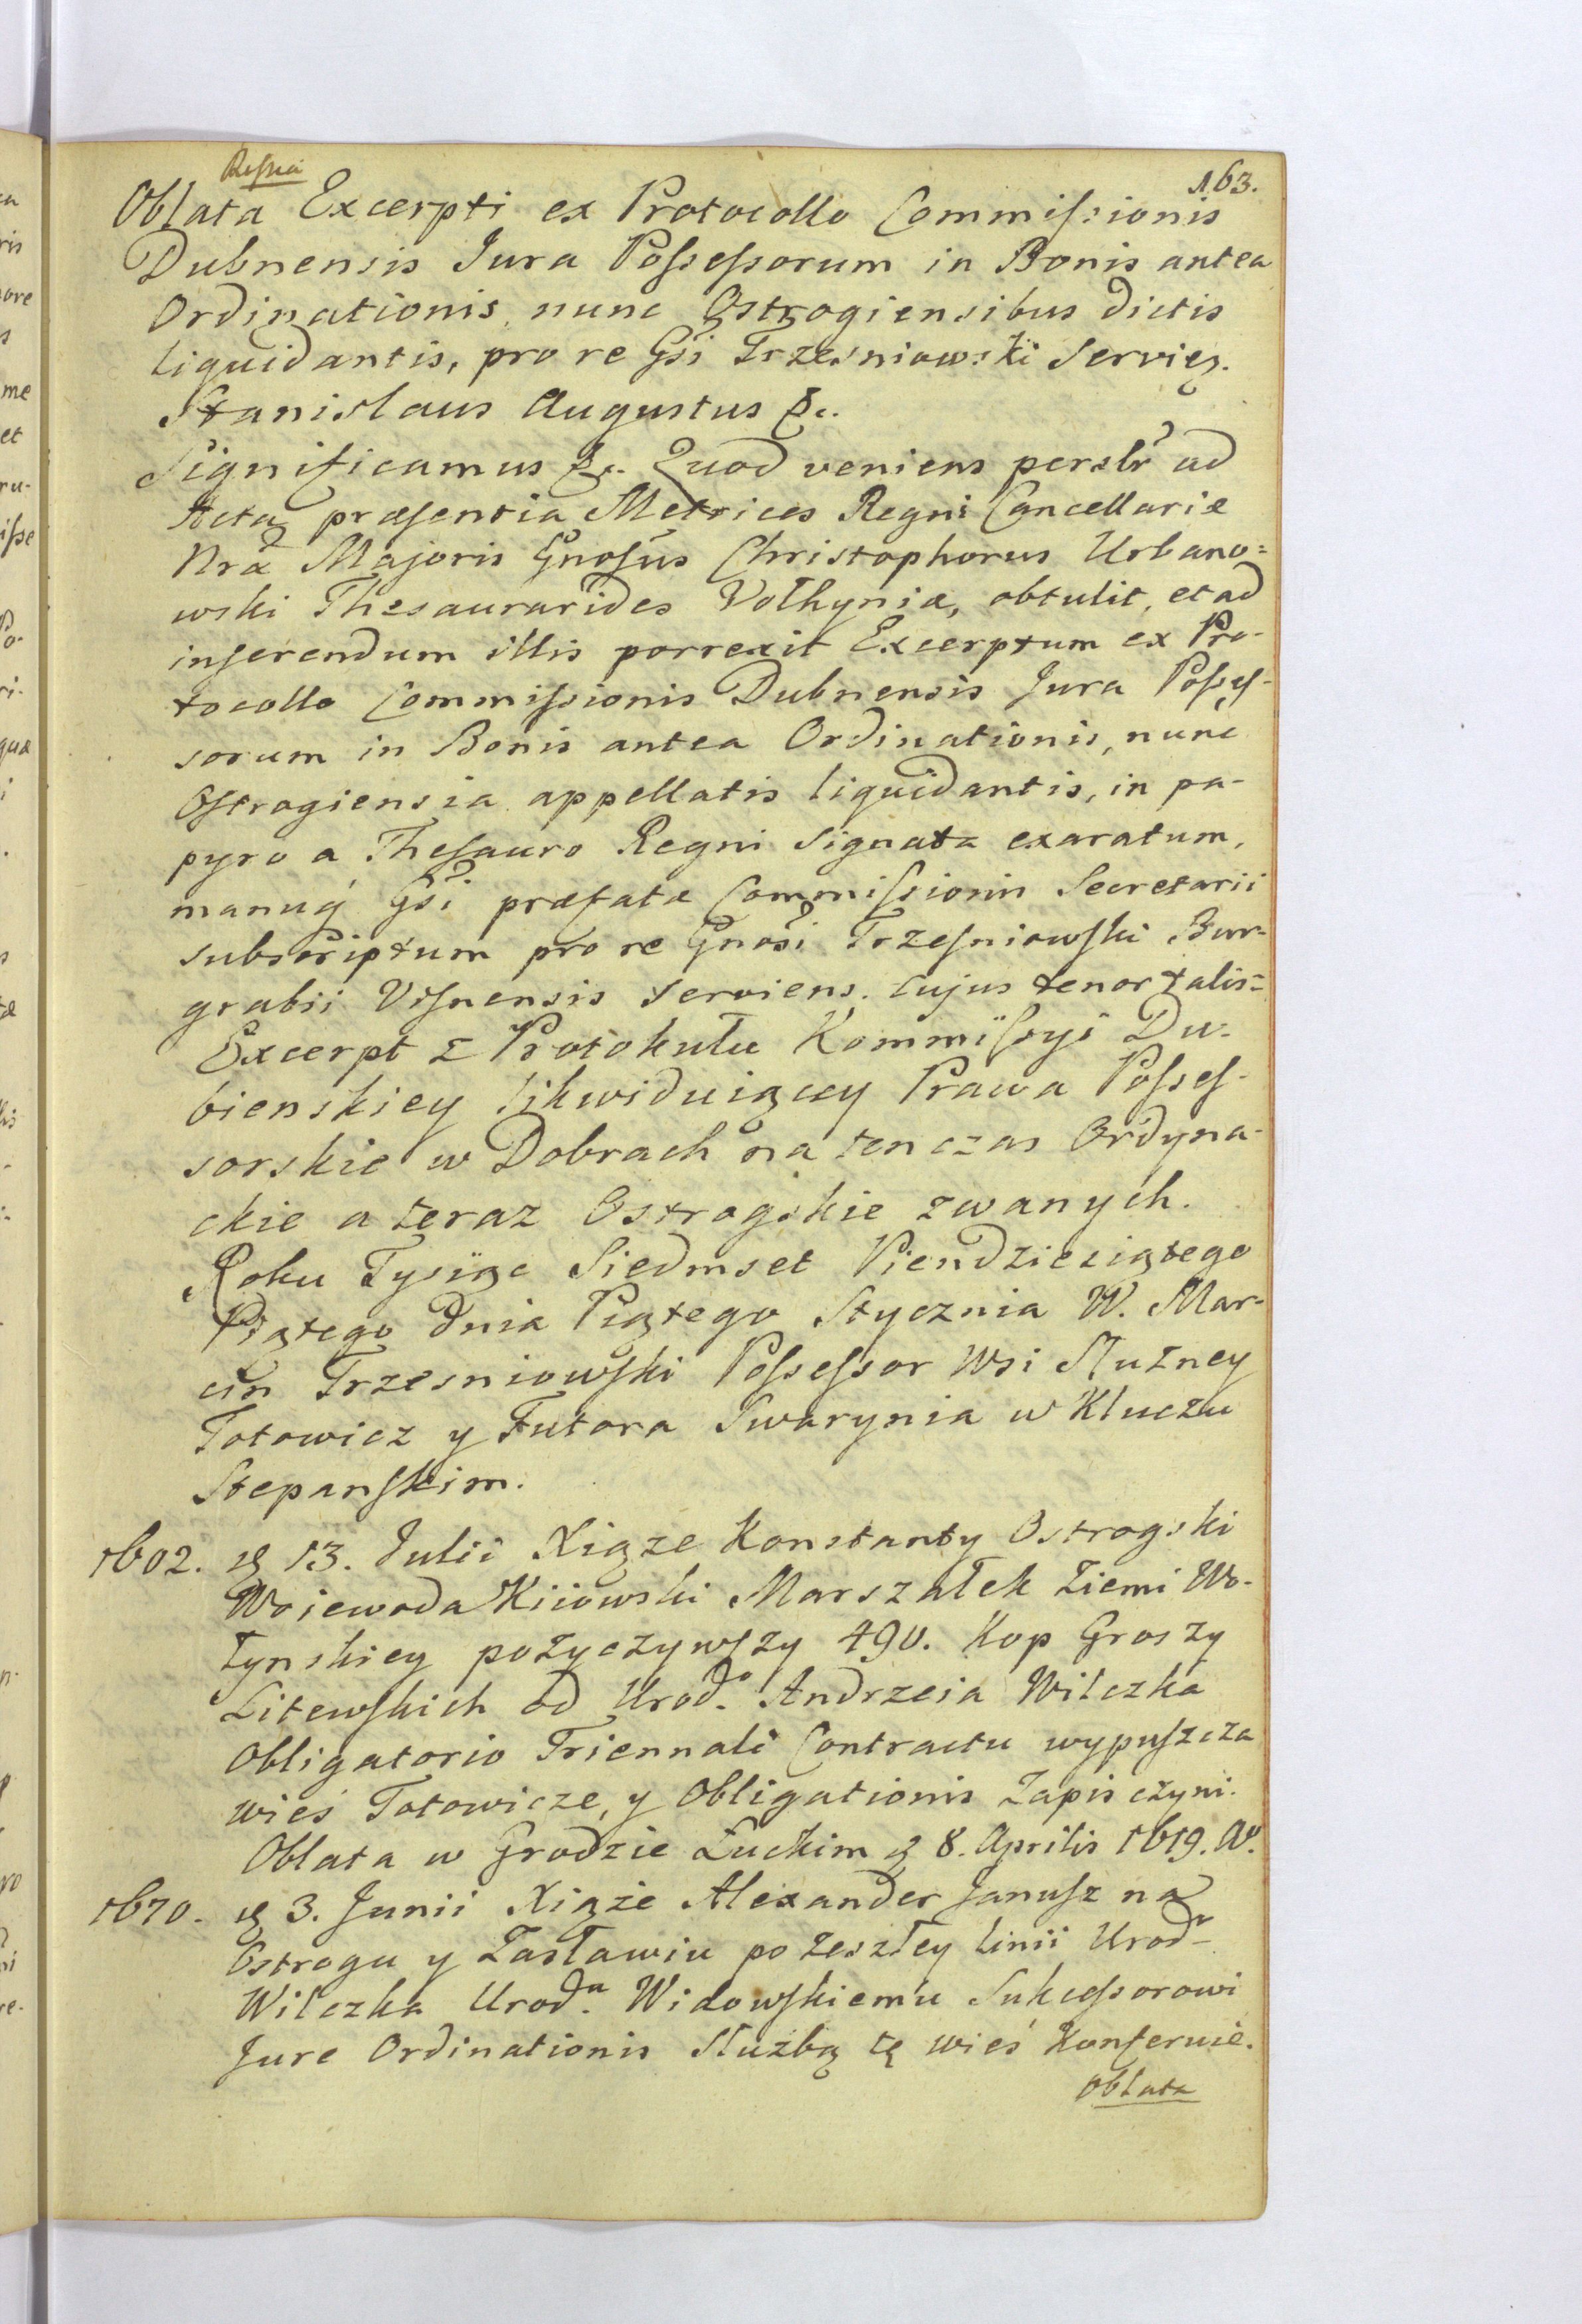 Russia
163.
Oblata Excerpti ex Protocollo Commissionis
Dubnensis Jura Possessorum in Bonis antea
Ordinationis, nunc Ostrogiensibus dictis
liquidantis, pro re Gsi Trzesniowski Servieñ.
Stanislaus Augustus &c.
Significamus &c. Quod veniens perslr ad
Acta præsentia Metrices Regni Cancellariæ
Nræ Majoris Gnosus Christophorus Urbano=
wski Thesaurarides Volhyniæ, obtulit, et ad
inserendum illis porrexit Excerptum ex Pro-
tocollo Commissionis Dubnensis Jura Posses-
sorum in Bonis antea Ordinationis, nunc
Ostrogiensia appellatis liquidantis, in pa-
pyro a Thesauro Regni Signata exaratum,
manuq Gsi præfatæ Commissionis Secretarii
subscriptum pro re Gnosi Trzesniowski Bur-
grabii Visnensis Serviens. Cujus tenor talis=
Excerpt z Protokułu Kommissyi Du-
bienskiey likwiduiącey Prawa Posses-
sorskie w Dobrach na tenczas Ordyna-
ckie a teraz Ostrogskie zwanych.
Roku Tysiąc Siedmset Piendziesiątego
Piątego Dnia Piątego Stycznia W. Mar-
cin Trzesniowski Possessor Wsi Służney
Totowicz y Futora Swarynia w Kluczu
Stepanskim.
1602. d 13. Julii Xiąze Konstanty Ostrogski
Woiewoda Kiiowski Marszałek Ziemi Wo-
łynskiey pożyczywszy 490. Kop Groszy
Litewskich od Urod.o Andrzeia Wilczka
Obligatorio Triennali Contractu wypuszcza
wieś Totowicze, y Obligationis Zapis czyni.
Oblata w Grodzie Łuckim d 8. Aprilis 1619. Ao.
1670. d 3. Junii Xiąże Alexander Janusz na
Ostrogu y Zasławiu po zeszłey linii Urod.
Wilczka Urod.u Widowskiemu Sukcessorowi
Jure Ordinationis Służbą tę wieś Konferuie.
Oblata